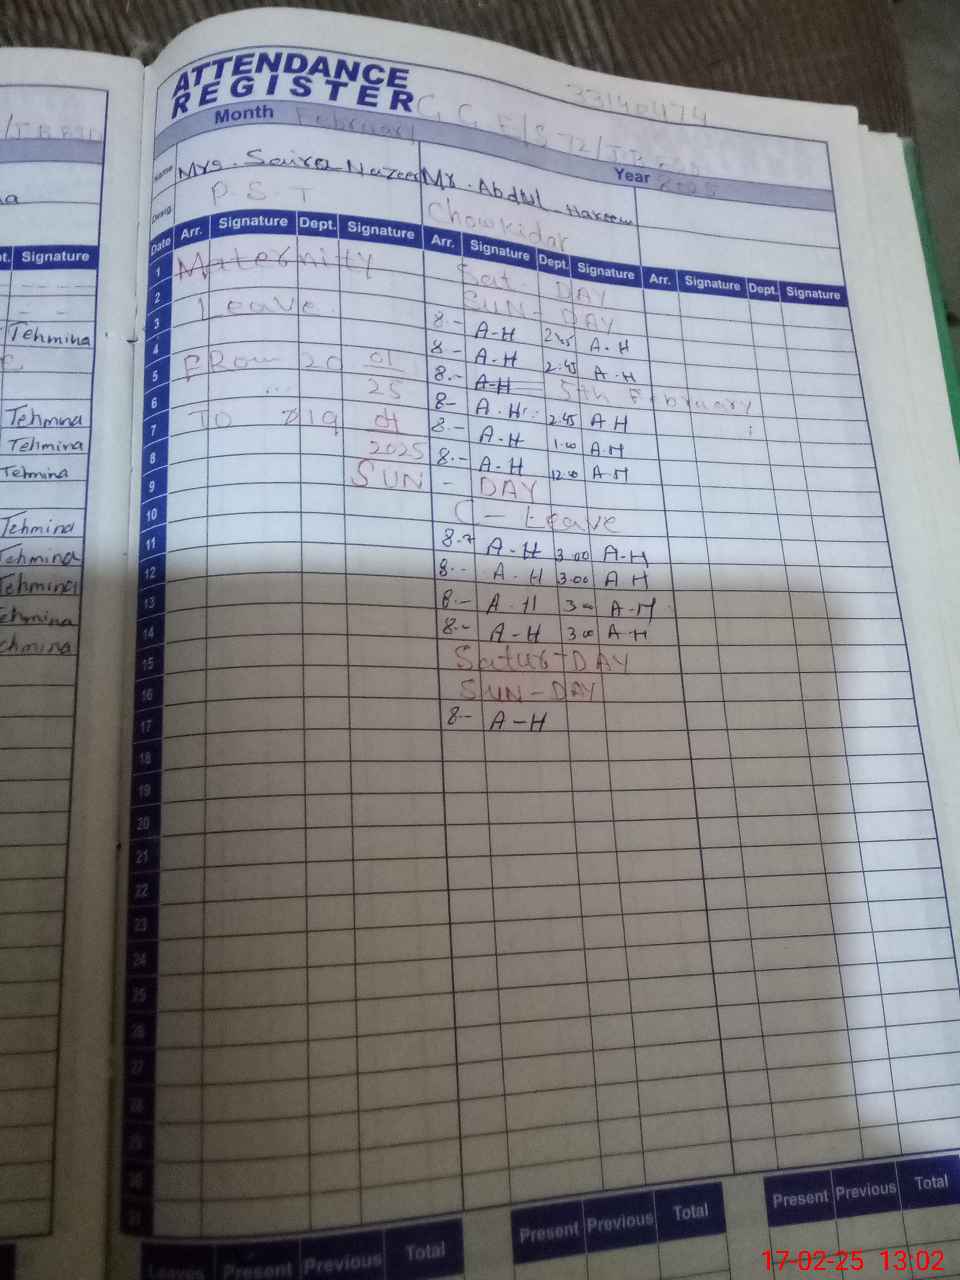 ATTENDANCE
REGISTER
33140474
Month February
Year 2025
Name Mrs. Saira Nazeer Mr. Abdul Hakeem
Desig. P.S.T Chowkidar
Date Arr. Signature Dept. Signature Arr. Signature Dept. Signature Arr. Signature Dept. Signature
1 Maternity Sat. DAY
2 Leave. SUN - DAY
3 8.- A-H 2.45 A-H
4 FROM 20 01 8.- A-H 2.45 A.H
5 25 8.- A-H 5th February
6 TO 19 04 8- A.H 2.45 AH
7 2025 8.- A-H 1.00 A.H
8 SUN 8.- A-H 12.00 A-H
9 - DAY
10 C - Leave
11 8.- A-H 3.00 A-H
12 8.- A.H 3.00 AH
13 8.- A.H 3.00 A-H
14 8.- A-H 3.00 A-H
15 Satur-DAY
16 SUN-DAY
17 8.- A-H
18
19
20
21
22
23
24
25
26
27
28
29
30
31
Leaves Present Previous Total Present Previous Total Present Previous Total
Signature
Tehmina
Tehmina
Tehmina
Tehmina
Tehmina
Tehmina
Tehmina
Tehmina
Tehmina
17-02-25 13:02